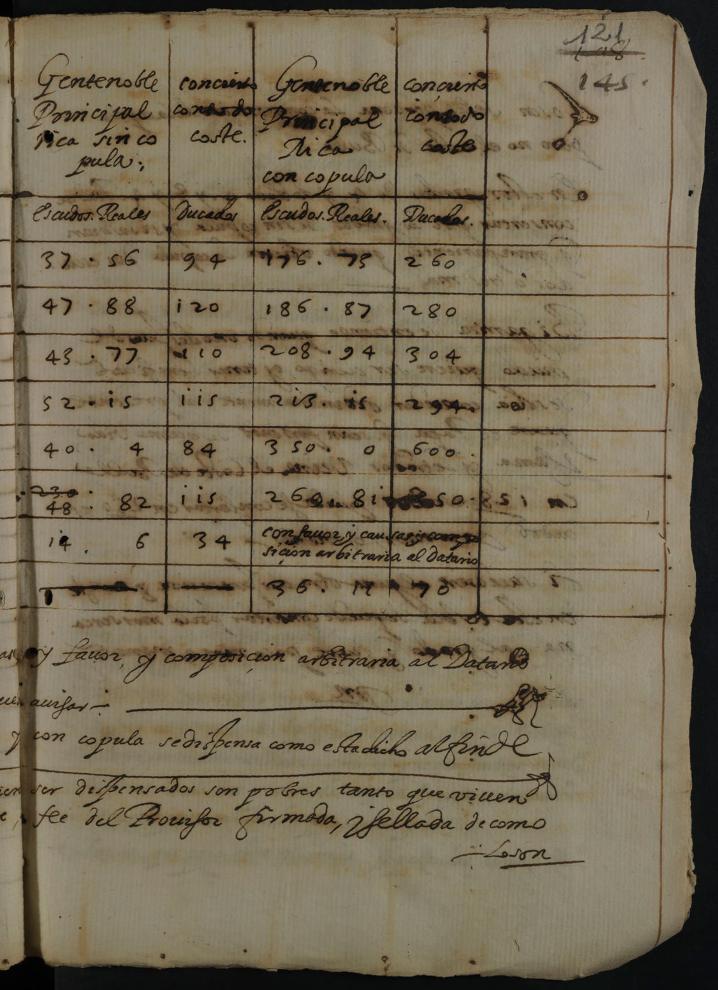 121
145.
Gentenoble concierto Gentenoble concierto
Principal con todo Principal con todo
rica sin co coste. Rica coste
pula. con copula
Escudos. Reales Ducados Escudos. Reales. Ducados.
37 . 56 94 176 . 73 260
47 . 88 120 186 . 87 280
43 . 77 110 208 . 94 304
52 . is iis 213 . is 294.
40 . 4 84 350 . 0 600.
230
48 . 82 iis 81 351.
14 . 6 34 con favor, y causas, y compo
sicion arbitraria al Datario
36 . 70
y favor, y composicion arbitraria al Datario
avisar
y con copula se dispensa como esta dicho al fin de
ser dispensados son pobres tanto que viven
fee del Provisor firmada, y sellada de como
Loson